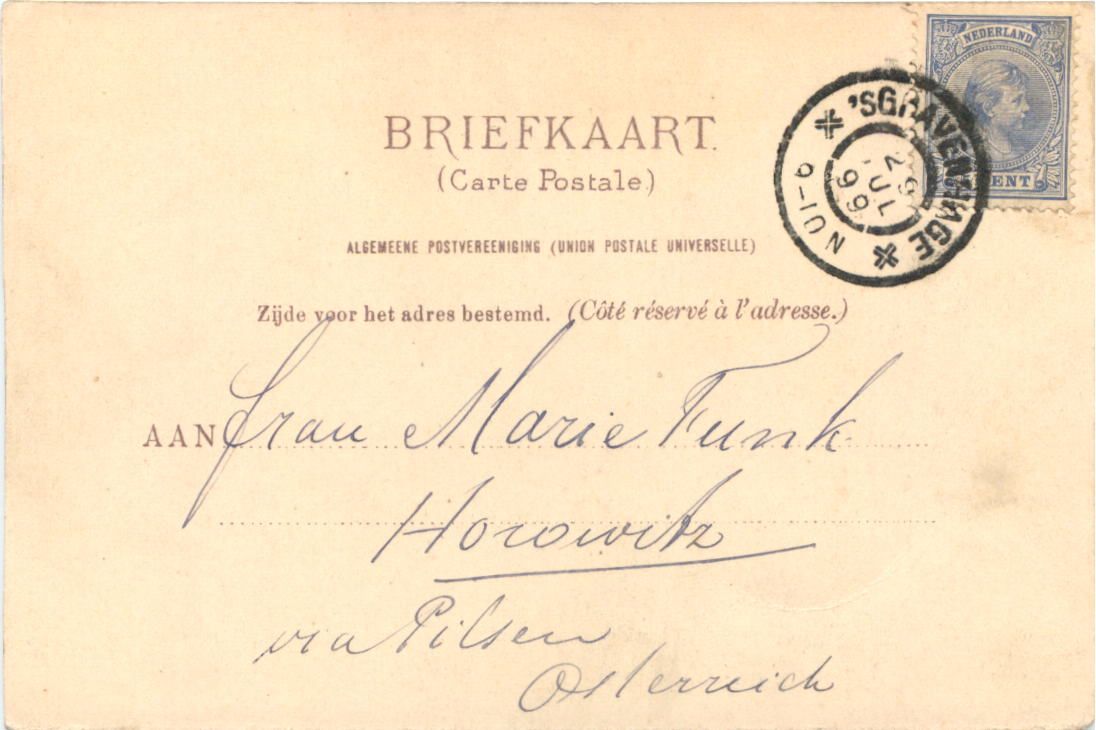 NEDERLAND
CENT
'SGRAVENHAGE
29 JUL 99
9-10N
BRIEFKAART.
(Carte Postale.)
ALGEMEENE POSTVEREENIGING (UNION POSTALE UNIVERSELLE)
Zijde voor het adres bestemd. (Côté réservé à l'adresse.)
AAN Frau Marie Funk
Horowitz
via Pilsen
Osterreich